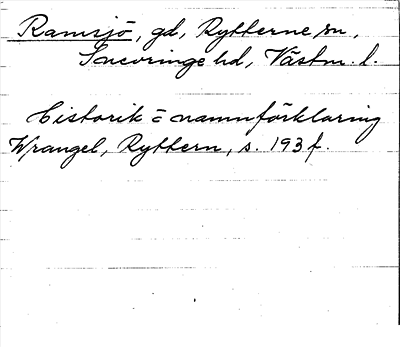 Ramsjö, gd, Rytterne sn,
Snevringe hd, Västm. l.
Historik o namnförklaring
Wrangel, Ryttern, s. 193 f.